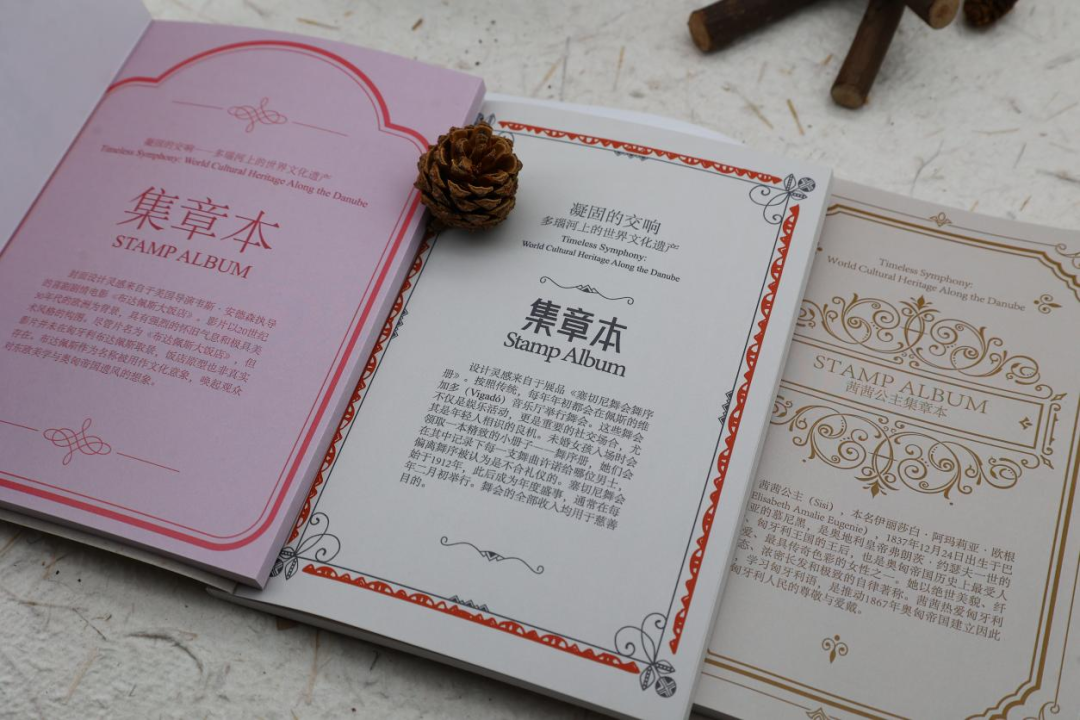 凝固的交响——多瑙河上的世界文化遗产
Timeless Symphony: World Cultural Heritage Along the Danube
集章本
STAMP ALBUM
封面设计灵感来自于美国导演韦斯·安德森执导
的喜剧剧情电影《布达佩斯大饭店》。影片以20世纪
30年代的欧洲为背景，具有强烈的怀旧气息和极具美
术风格的构图。尽管片名为《布达佩斯大饭店》，但
影片并未在匈牙利布达佩斯取景，饭店原型也非真实
存在。布达佩斯作为名称被用作文化意象，唤起观众
对东欧美学与奥匈帝国遗风的想象。
凝固的交响
多瑙河上的世界文化遗产
Timeless Symphony:
World Cultural Heritage Along the Danube
集章本
Stamp Album
设计灵感来自于展品《塞切尼舞会舞序
册》。按照传统，每年年初都会在佩斯的维
加多（Vigadó）音乐厅举行舞会。这些舞会
不仅是娱乐活动，更是重要的社交场合，尤
其是年轻人相识的良机。未婚女孩入场时会
领取一本精致的小册子——舞序册，她们会
在其中记录下每一支舞曲许诺给哪位男士，
偏离舞序被认为是不合礼仪的。塞切尼舞会
始于1912年，此后成为年度盛事，通常在每
年二月初举行。舞会的全部收入均用于慈善
目的。
Timeless Symphony:
World Cultural Heritage Along the Danube
STAMP ALBUM
茜茜公主集章本
茜茜公主（Sisi），本名伊丽莎白·阿玛莉亚·欧根
Elisabeth Amalie Eugenie），1837年12月24日出生于巴
亚的慕尼黑，是奥地利皇帝弗朗茨·约瑟夫一世的
、匈牙利王国的王后，也是奥匈帝国历史上最受人
爱、最具传奇色彩的女性之一。她以绝世美貌、纤
态、浓密长发和极致的自律著称。茜茜热爱匈牙利
，学习匈牙利语，是推动1867年奥匈帝国建立因此
匈牙利人民的尊敬与爱戴。